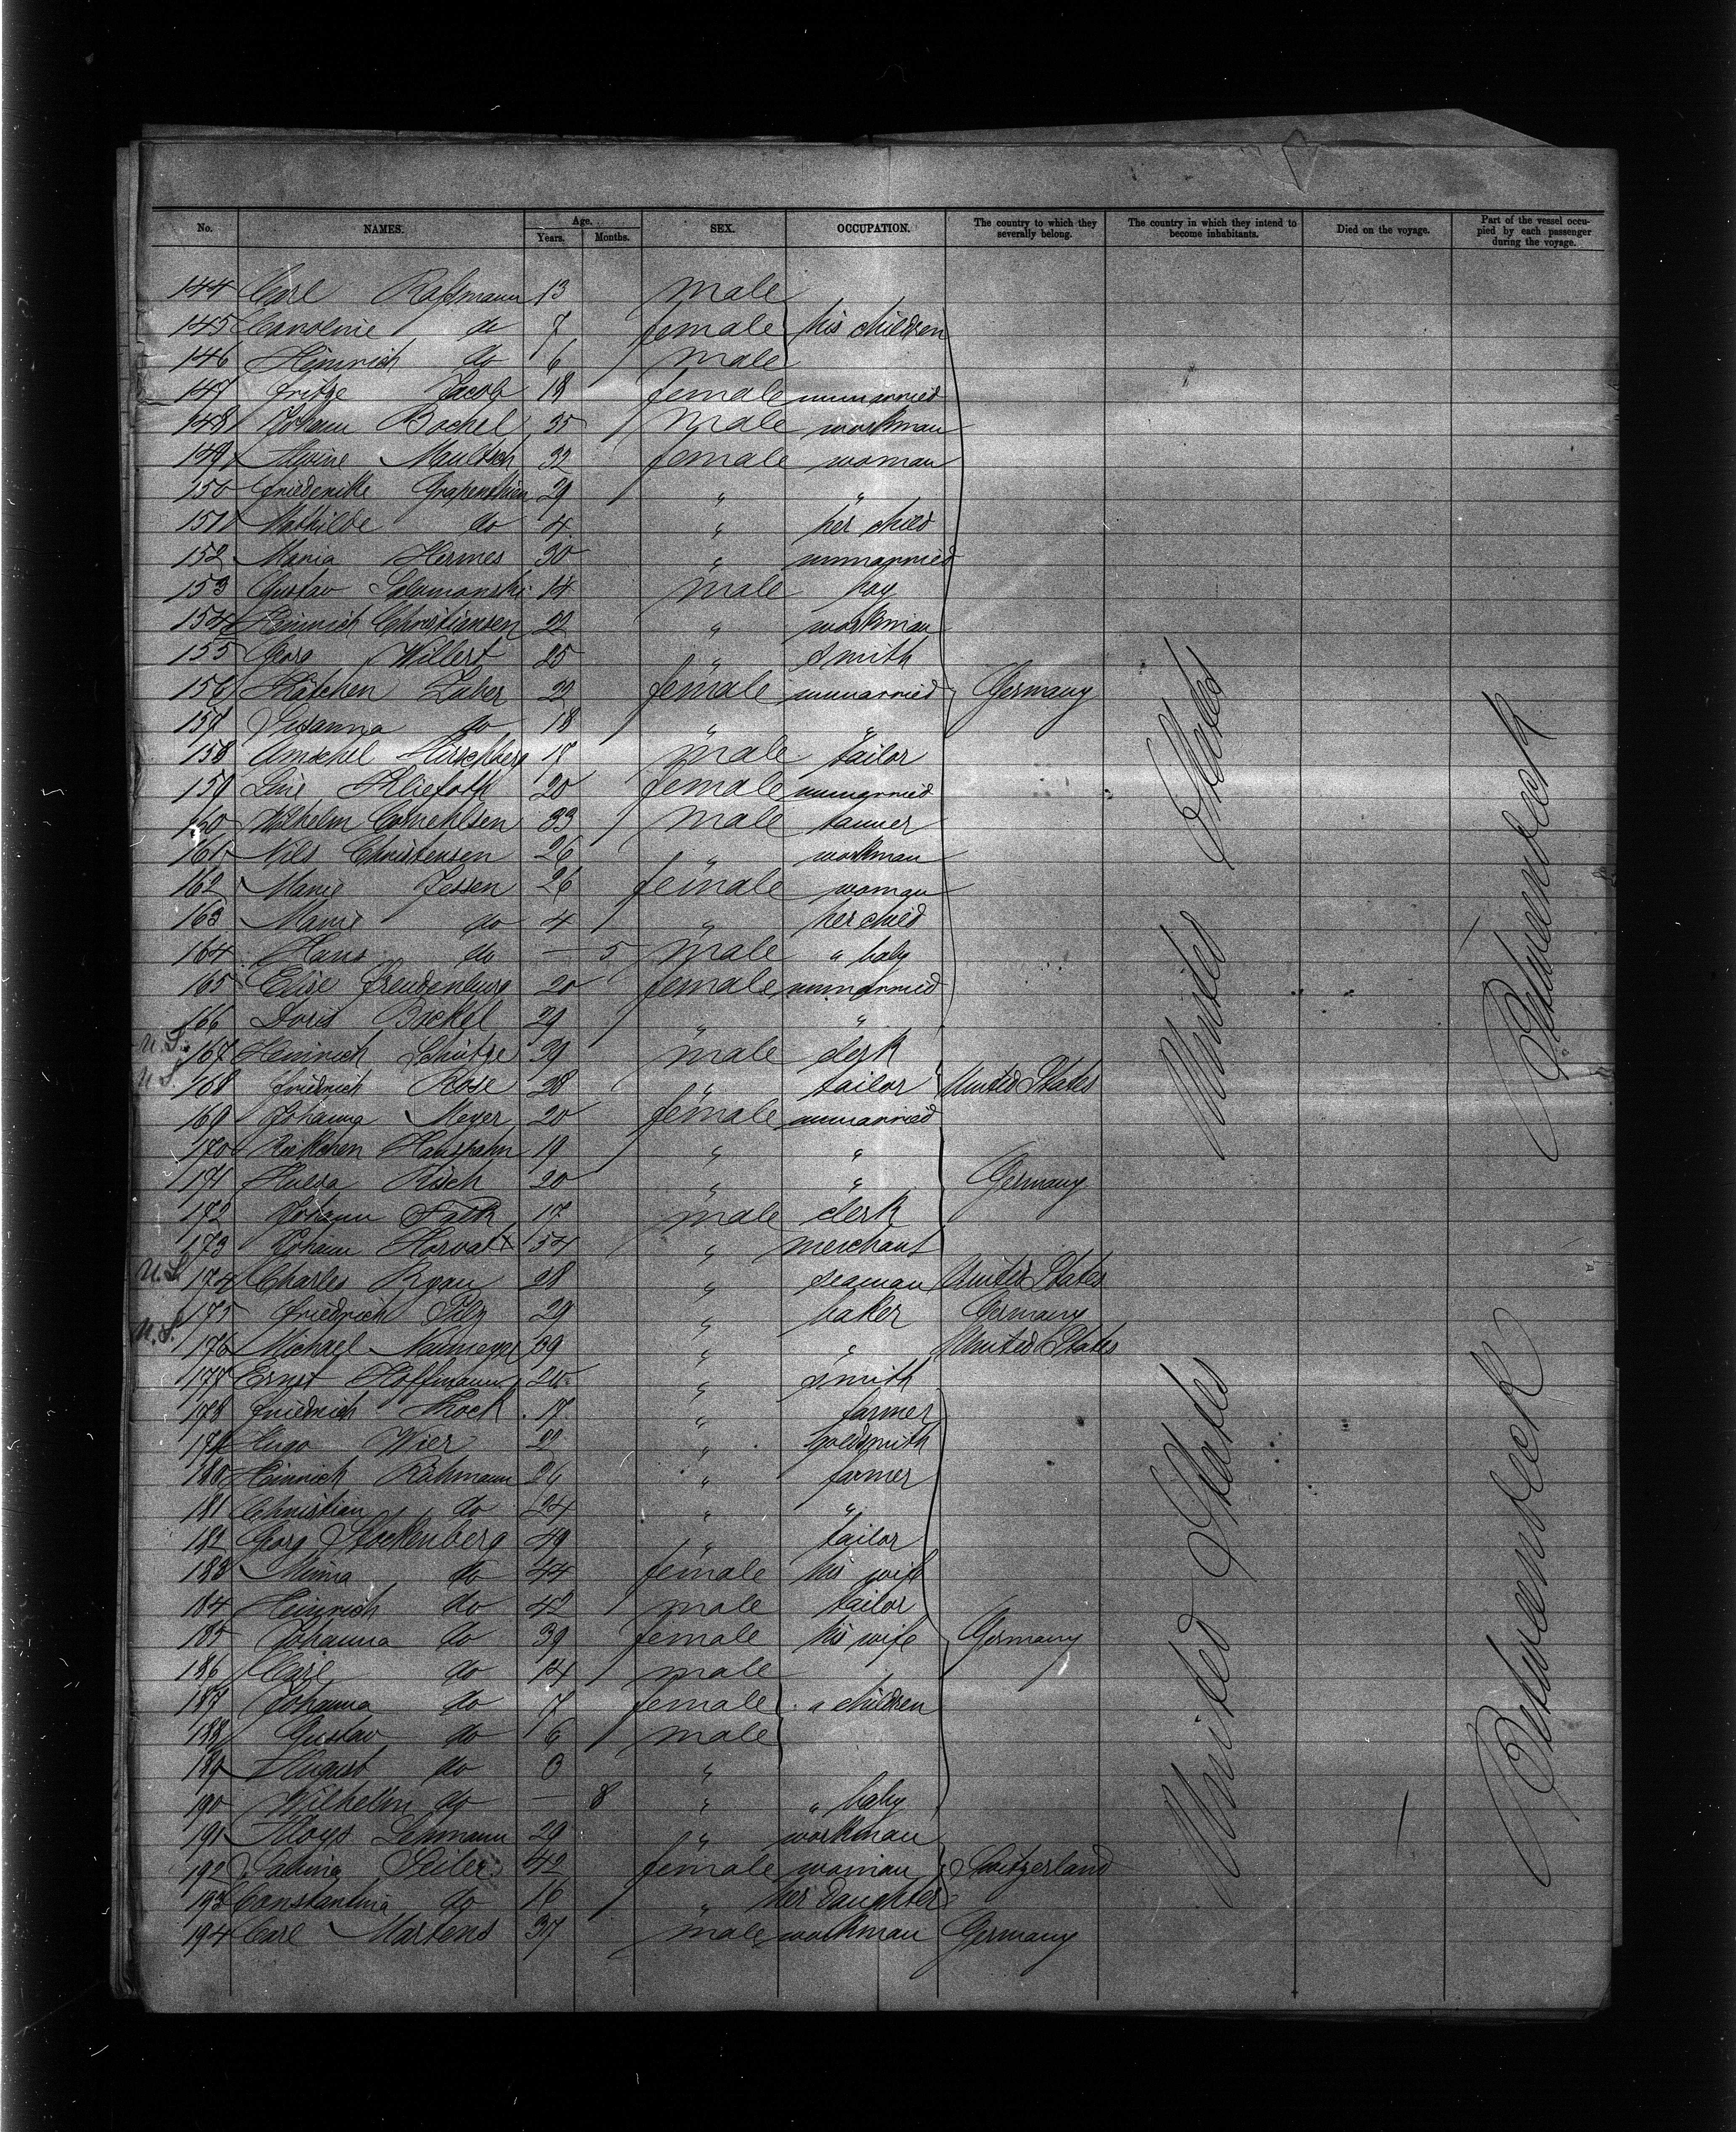 No. NAMES. Age. Years. Months. SEX. OCCUPATION. The country to which they severally belong. The country in which they intend to become inhabitants. Died on the voyage. Part of the vessel occupied by each passenger during the voyage.
144 Carl Raffmann 13 male
145 Caroline do 7 female his children
146 Heinrich do 6 male
147 Fritze Jacob 18 female unmarried
148 Johann Bockel 35 male workman
149 Alwine Meultsch 32 female woman
150 Friederike 29 " "
151 Mathilde do 4 " her child
152 Maria Hermes 30 " unmarried
153 Gustav Salomonski 14 male boy
154 Heinrich Christiansen 22 " workman
155 Georg Willert 25 " smith
156 Käthchen Zuber 22 female unmarried Germany
157 Susanna do 18 " "
158 Amschel Hirschberg 17 male tailor
159 Line Kliefoth 20 female unmarried
160 Wilhelm Cornehlsen 33 male tanner
161 Nils Christensen 26 " workman
162 Marie Jessen 26 female woman
163 Marie do 4 " her child
164 Hans do — 5 male " baby
165 Elise Freudenburg 20 female unmarried
166 Doris Bockel 29 " "
U.S. 167 Heinrich Schütze 39 male clerk
U.S. 168 Friedrich Rose 28 " tailor United States
169 Johanna Meyer 20 female unmarried
170 Haushahn 19 " "
171 Hulda Rosch 20 " " Germany
172 Johann Falk 17 male clerk
173 Johann Horvatx 54 " merchant
U.S. 174 Charles Ryan 28 " seaman United States
175 Friedrich Pilz 29 " baker Germany
U.S. 176 Michael Naumeyer 39 " " United States
177 Ernst Hoffmann 25 " smith
178 Friedrich Kock 17 " farmer
179 Hugo Wier 22 " goldsmith
180 Heinrich Rähmann 26 " farmer
181 Christian do 24 " "
182 Georg Stockenberg 49 " tailor
183 Minna do 44 female his wife
184 Heinrich do 42 male tailor
185 Johanna do 39 female his wife Germany
186 Carl do 14 male
187 Johanna do 7 female " children
188 Gustav do 6 male
189 August do 3 "
190 Wilhelm do — 8 " " baby
191 Aloys Lehmann 29 " workman
192 Sabina Seiler 42 female woman Switzerland
193 Constantina do 16 " her daughter
194 Carl Martens 37 male workman Germany
United States
United States
Betweendeck
Betweendeck